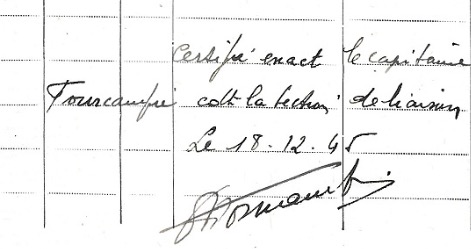 Certifié exact le capitaine
Tourcampré cdt la section de liaison
Le 18.12.45